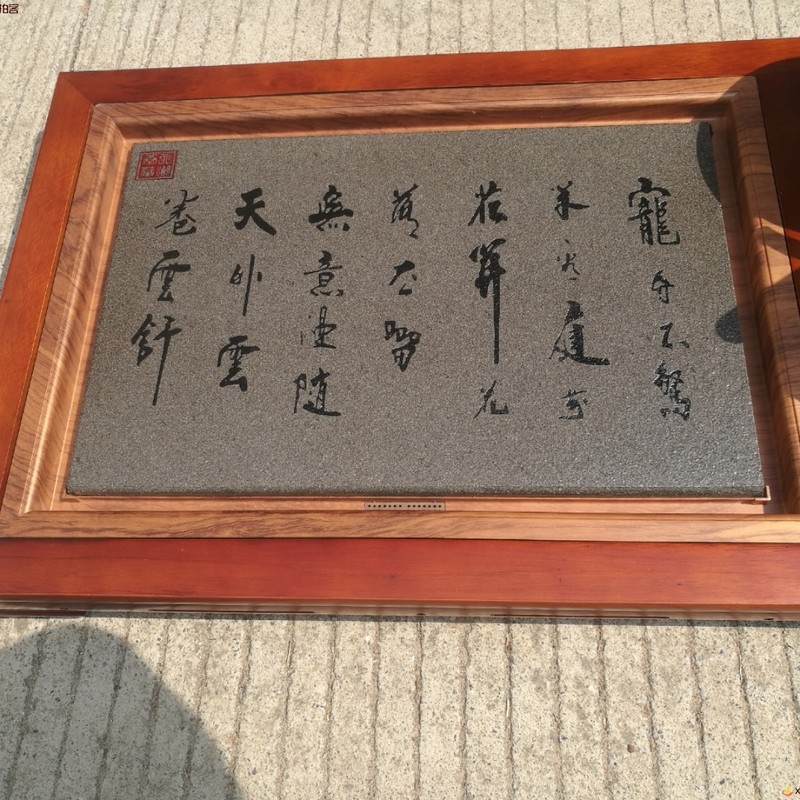 寵辱不驚
閑看庭前
花開花
落去留
無意漫隨
天外雲
卷雲舒